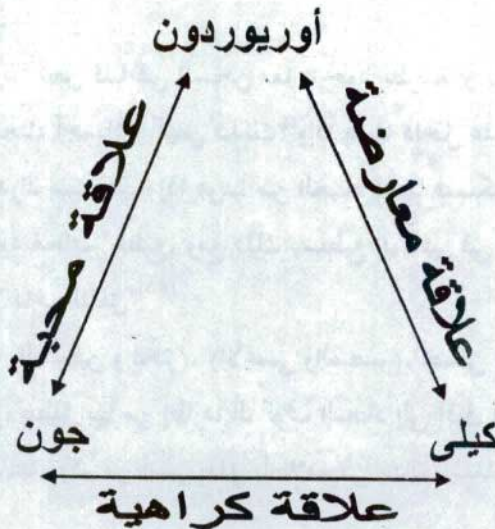 أوريوردون
علاقة صحبة
علاقة معارضة
جون
كيلى
علاقة كراهية